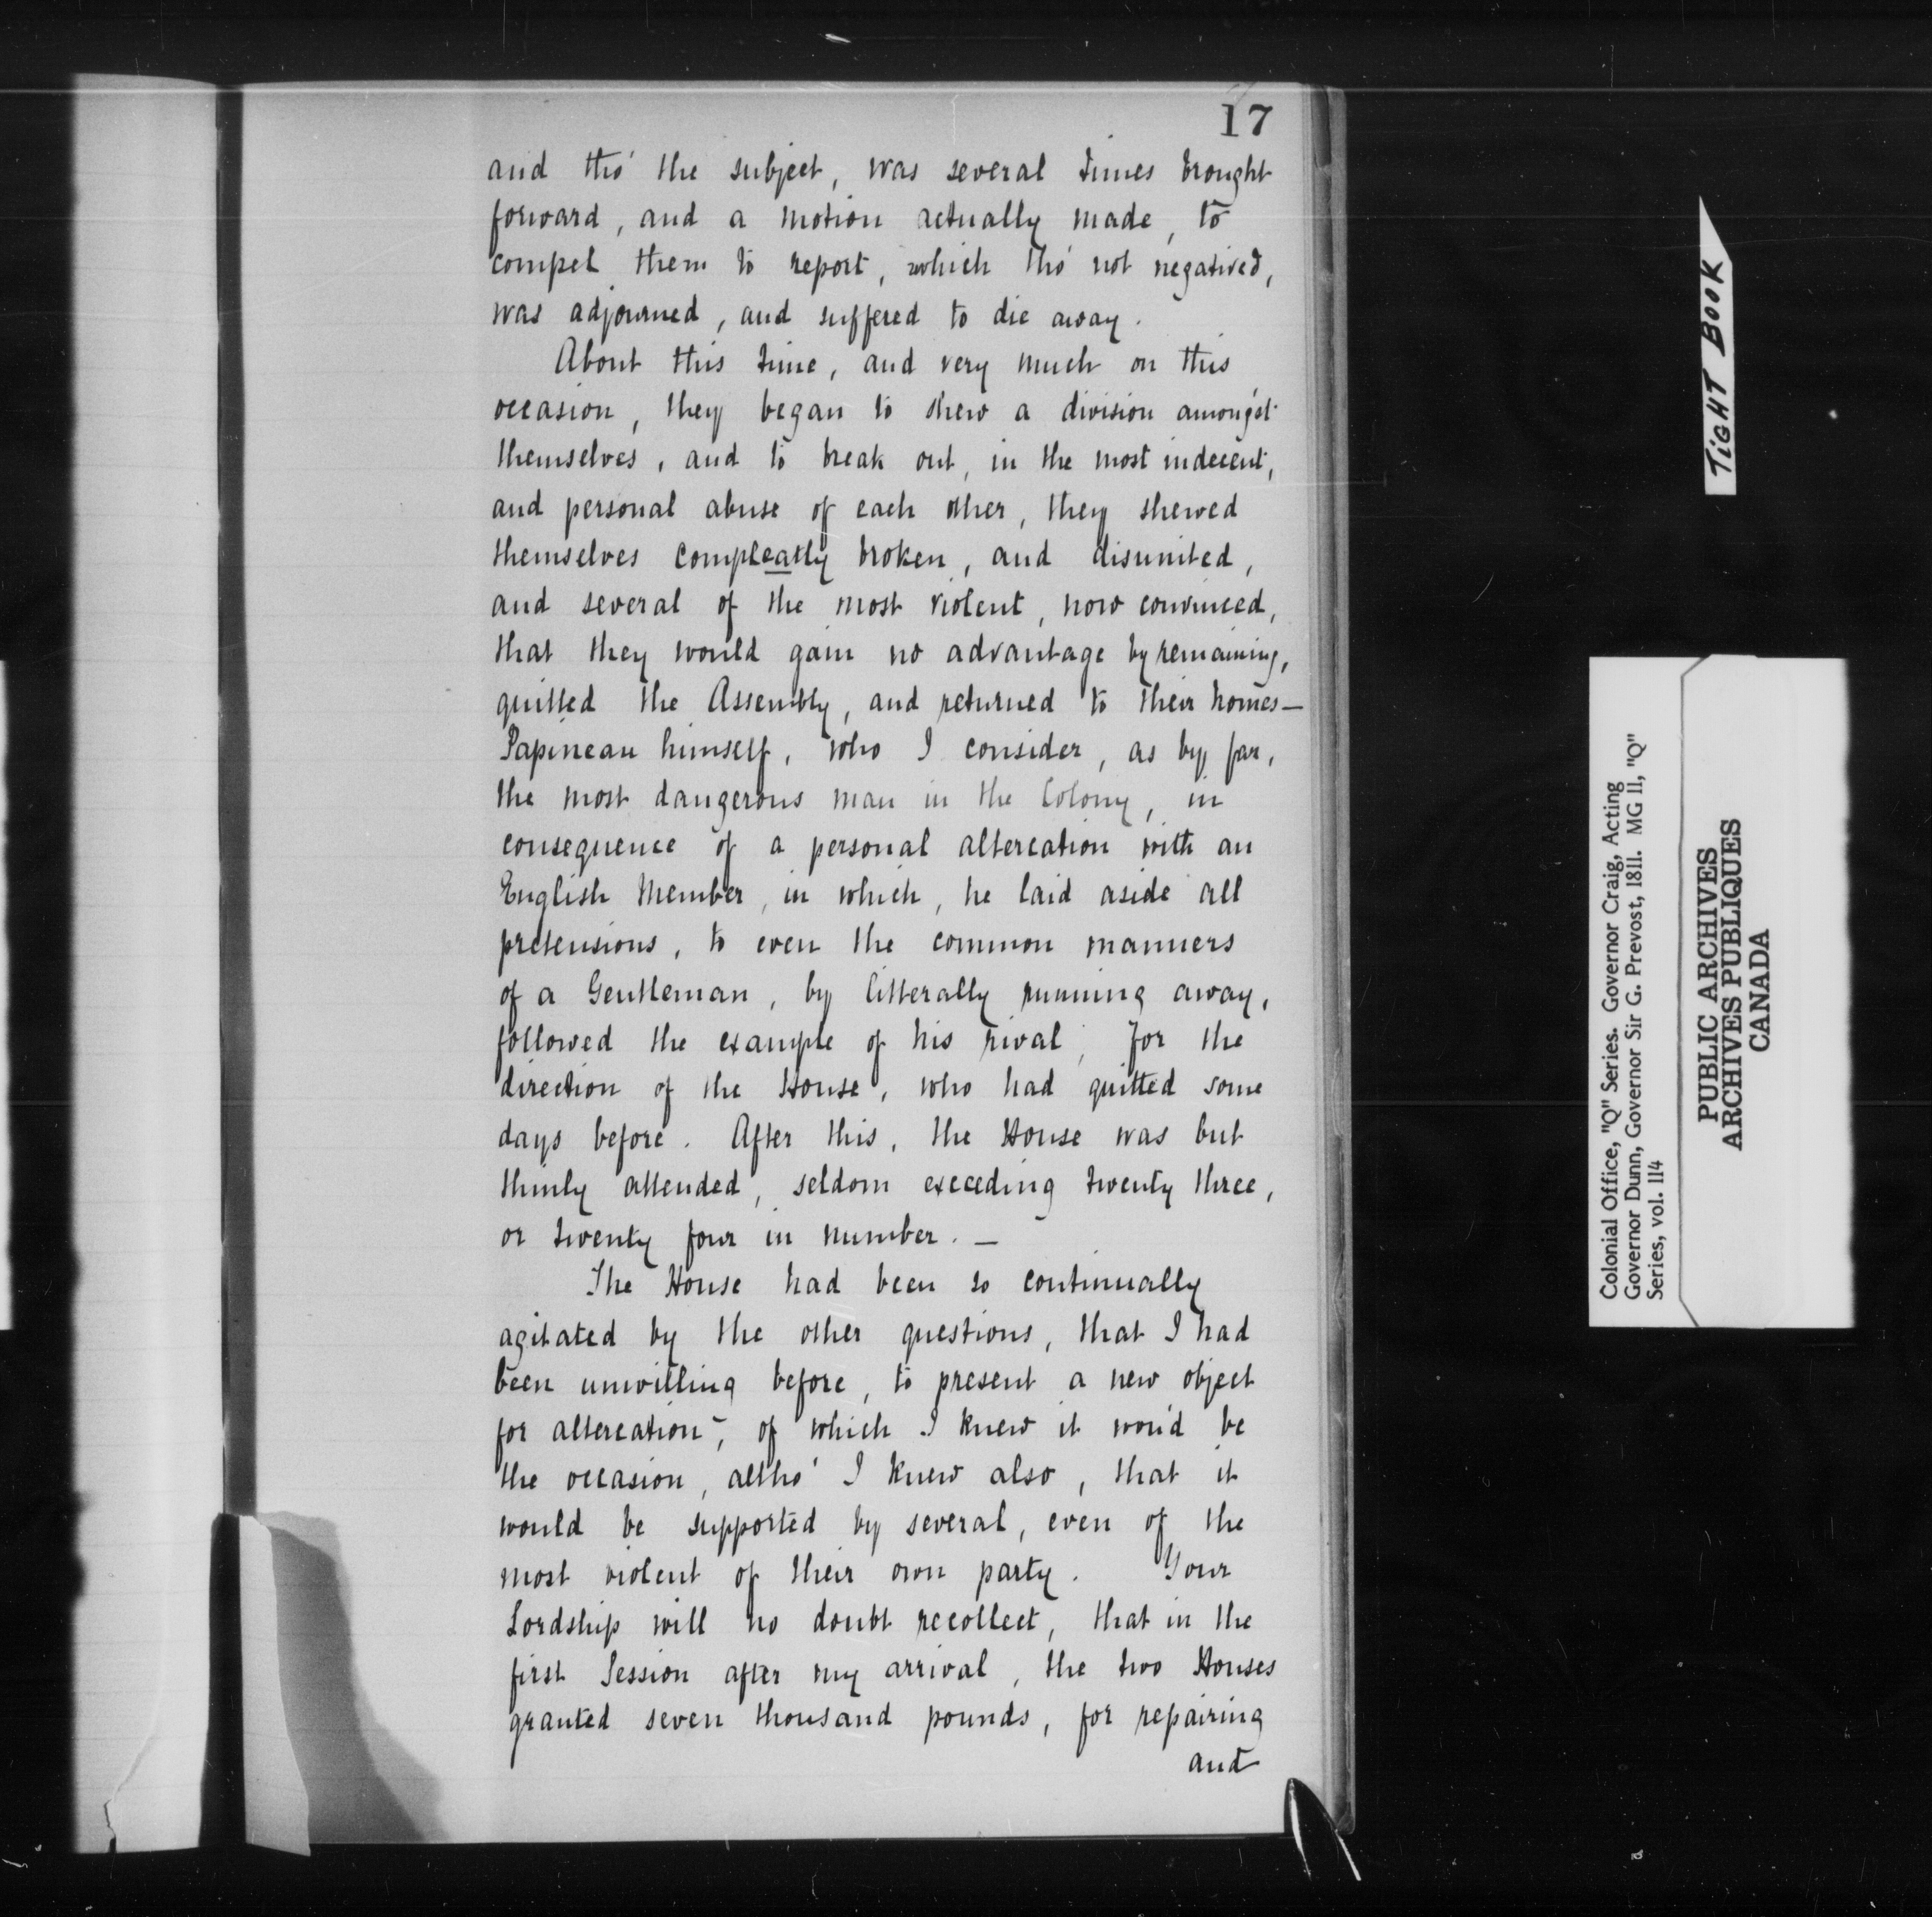 17
and tho' the subject, was several times brought
forward, and a motion actually made, to
compel them to report, which tho' not negatived,
was adjourned, and suffered to die away.
About this time, and very much on this
occasion, they began to shew a division amongst
themselves, and to break out, in the most indecent,
and personal abuse of each other, they shewed
themselves compleatly broken, and disunited,
and several of the most violent, now convinced,
that they would gain no advantage by remaining,
quitted the Assembly, and returned to their homes—
Papineau himself, who I consider, as by far,
the most dangerous man in the Colony, in
consequence of a personal altercation with an
English Member, in which, he laid aside all
pretensions, to even the common manners
of a Gentleman, by litterally running away,
followed the example of his rival, for the
direction of the House, who had quitted some
days before. After this, the House was but
thinly attended, seldom exceeding twenty three,
or twenty four in number. —
The House had been so continually
agitated by the other questions, that I had
been unwilling before, to present a new object
for altercation, of which I knew it wou'd be
the occasion, altho' I knew also, that it
would be supported by several, even of the
most violent of their own party. Your
Lordship will no doubt recollect, that in the
first Session after my arrival, the two Houses
granted seven thousand pounds, for repairing
and
TIGHT BOOK
Colonial Office, "Q" Series. Governor Craig, Acting
Governor Dunn, Governor Sir G. Prevost, 1811. MG 11, "Q"
Series, vol. 114
PUBLIC ARCHIVES
ARCHIVES PUBLIQUES
CANADA